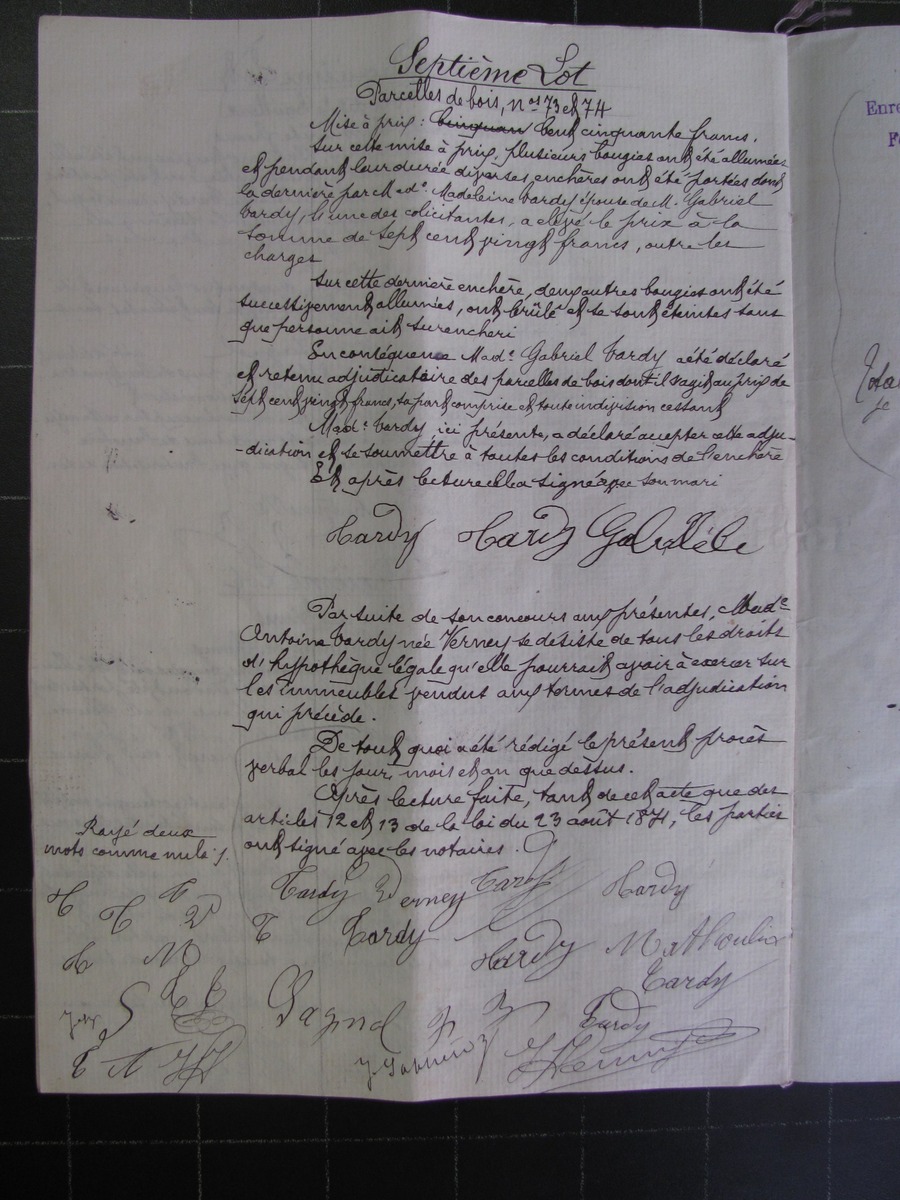 Septième Lot
Parcelles de bois, nos 73 et 74
Mise à prix: cinquan cent cinquante francs.
Sur cette mise à prix, plusieurs bougies ont été allumées
et pendant leur durée diverses enchères ont été portées dont
la dernière par Made. Madeleine Tardy épouse de M. Gabriel
Tardy, l'une des colicitantes, a élevé le prix à la
somme de sept cent vingt francs, outre les
charges
Sur cette dernière enchère, deux autres bougies ont été
successivement allumées, ont brûlé et se sont éteintes sans
que personne ait surenchéri
En conséquence Made. Gabriel Tardy a été déclaré
et retenu adjudicataire des parcelles de bois dont il s'agit au prix de
sept cent vingt francs, sa part comprise et toute indivision cessant
Made. Tardy, ici présente, a déclaré accepter cette adju-
-dication et se soumettre à toutes les conditions de l'enchère
Et après lecture elle a signé avec son mari
Tardy Tardy Gabriel
Par suite de son concours aux présentes, Made
Antoine Tardy née Verney se désiste de tous les droits
d'hypothèque légale qu'elle pourrait avoir à exercer sur
les immeubles vendus aux termes de l'adjudication
qui précède.
De tout quoi a été rédigé le présent procès
verbal les jour, mois et an que dessus.
Après lecture faite, tant de cet acte que des
articles 12 et 13 de la loi du 23 août 1871, les parties
ont signé avec les notaires.
Rayé deux
mots comme nuls
Tardy Verney Tardy Tardy
T Tardy Tardy Mathoulin
Tardy
Pagnol Tardy
Enre